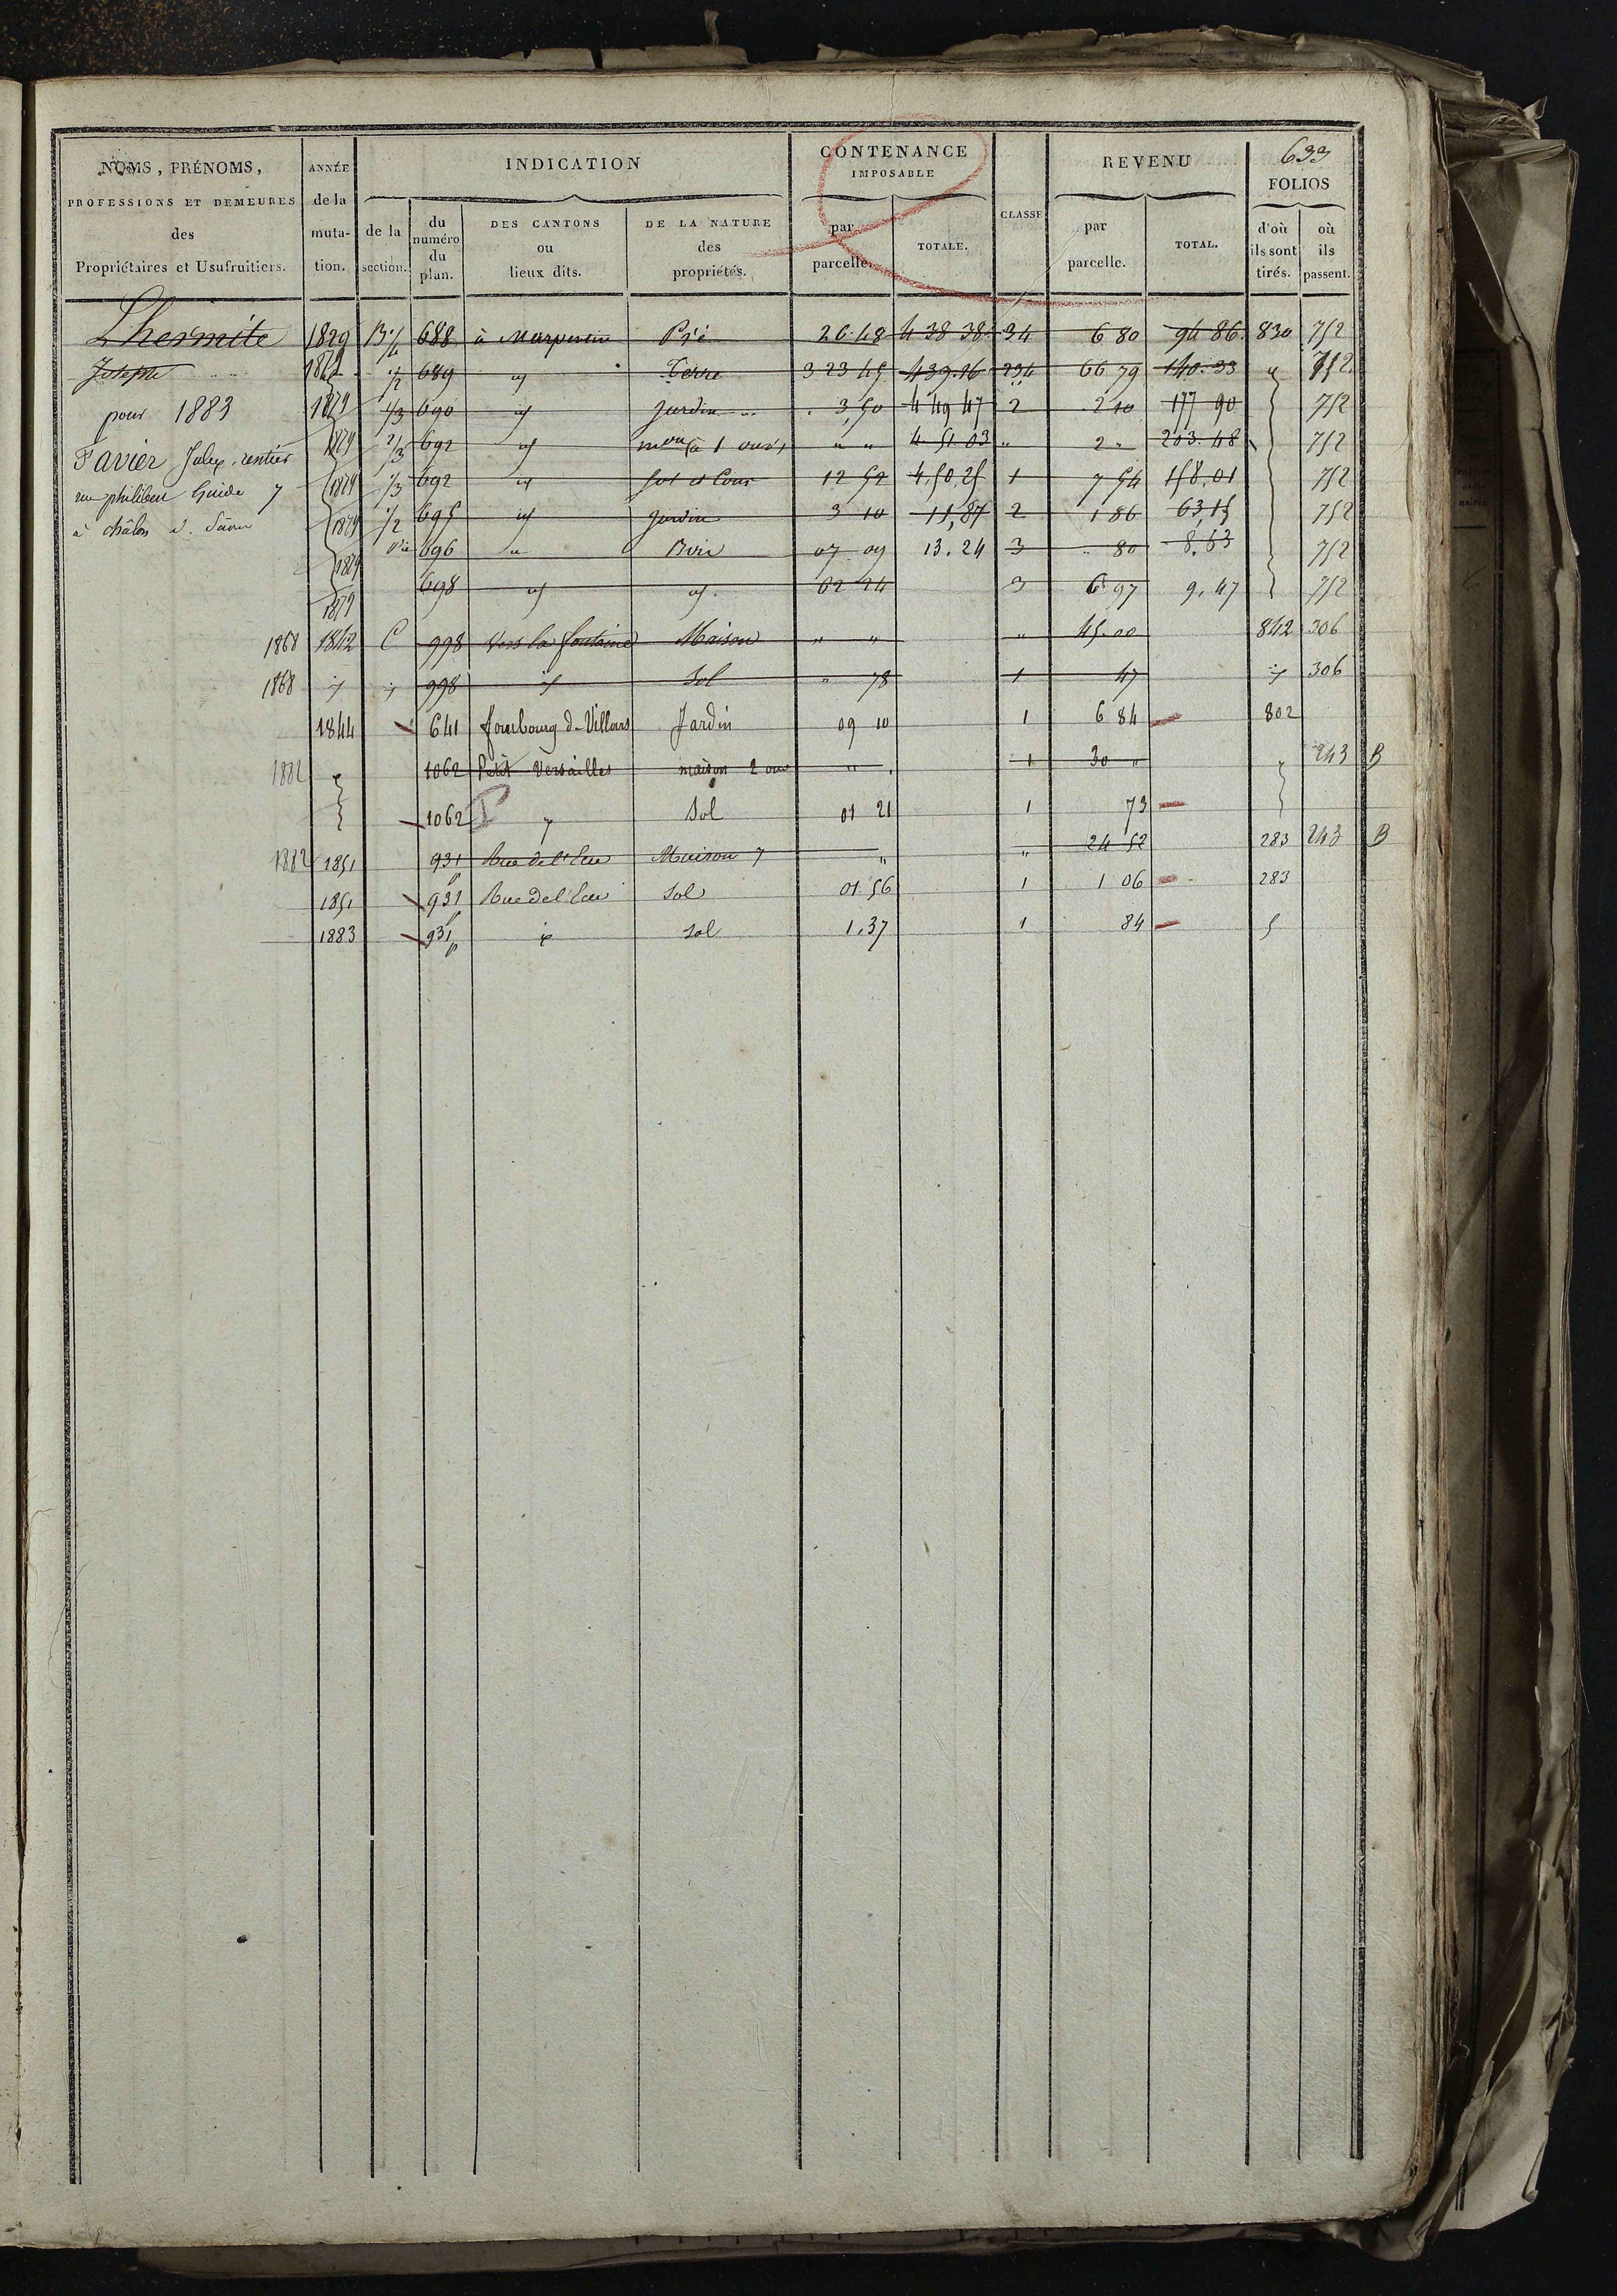 633
NOMS, PRÉNOMS, PROFESSIONS ET DEMEURES des Propriétaires et Usufruitiers.
ANNÉE de la muta- tion.
INDICATION
de la section.
du numéro du plan.
DES CANTONS ou lieux dits.
DE LA NATURE des propriétés.
CONTENANCE IMPOSABLE
par parcelle.
TOTALE.
CLASSE
REVENU
par parcelle.
TOTAL.
FOLIOS
d'où ils sont tirés.
où ils passent.
Lhermite 1829 B 688 à Pré 26.48 4 38 38 34 6 80 94 86 830 752
Joseph 1/2 689 Terre 3 23 45 439.16 234 66 79 140.33 752
pour 1883 1879 1/3 690 Jardin 3,50 4 49 47 2 2 10 177 90 752
Favier rentier 1879 2/3 692 mon à 1 ouv. " " 4 51.03 " 2 " 203.48 752
rue philibert Guide 7 1879 1/3 692 Sol et Cour 12 52 4.50,25 1 7 54 158,01 752
à châlon s. Saône 1879 1/2 695 Jardin 3 10 11,87 2 1 86 63,15 752
1879 696 Bois 07 09 13.24 3 80 8,63 752
1879 698 02 24 3 6 97 9,47 752
1868 1842 C 998 Vers la fontaine Maison " " " 45.00 842 306
1868 998 Sol " 78 1 47 306
1844 641 fourbourg de Villars Jardin 09 10 1 6 84 802
1882 1062 Petit Versailles maison 2 ouv " 1 30 " " 243 B
1062 Sol 01 21 1 73
1882 1851 931 p Rue de l'Eau Maison 7 " " 24 52 283 243 B
1851 931 p Rue de l'Eau Sol 01.56 1 1 06 283
1883 931 p sol 1.37 1 84